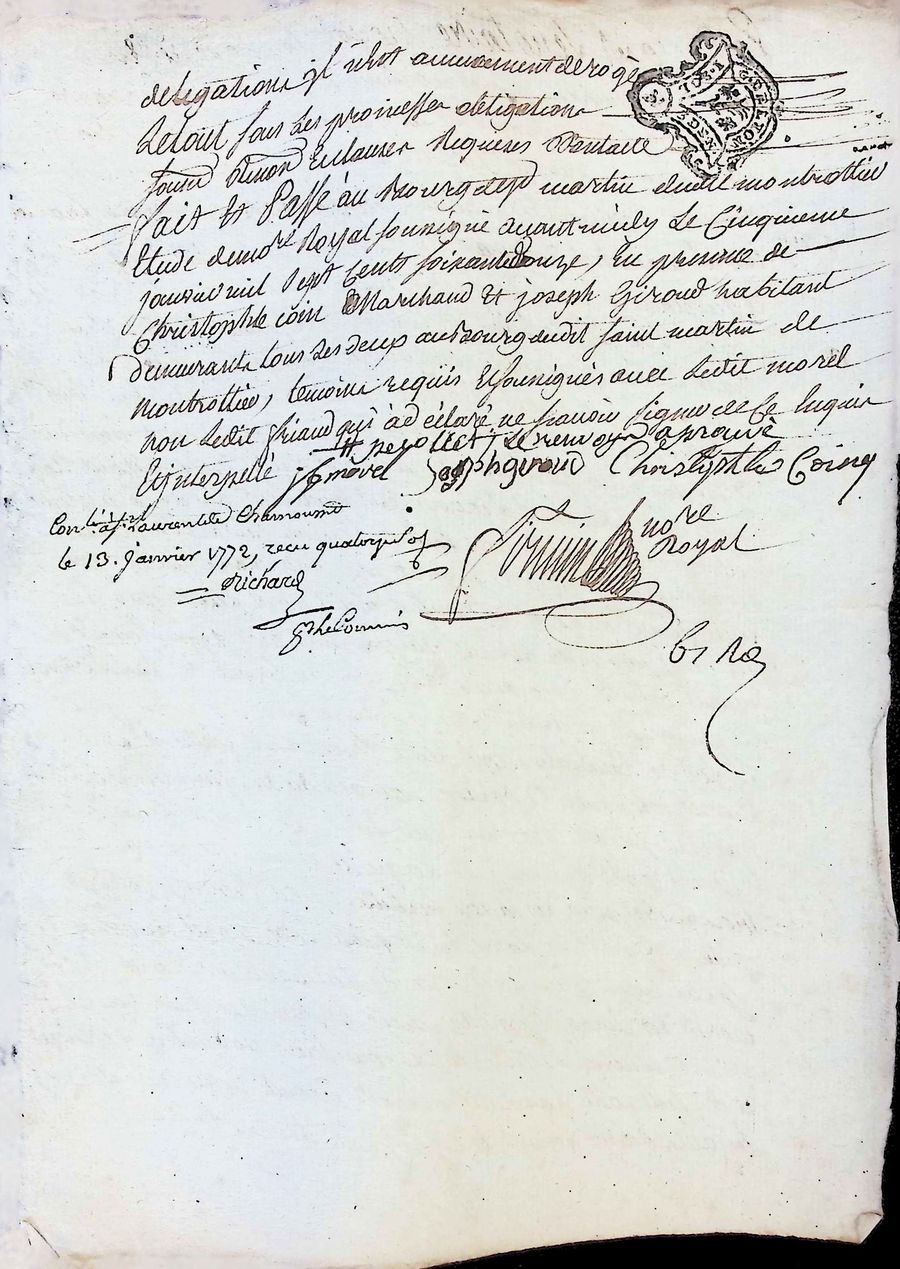 delegations il n'est aucunement derogé
Le tout sous Les promesses obligations
soum. Renon. Et clauses Requises Dont acte
fait Et Passé au Bourg de st martin dudit montrottier
Etude du no.re Royal soussigné avant midy Le Cinquieme
janvier mil sept cents soixante douze, En presence de
Christophle coin Marchand Et joseph Giroud habitant
Demeurants tous Les deux au Bourg dudit saint martin de
montrottier, temoins requis Et soussignés avec Ledit morel
non Ledit friaud qui a déclaré ne sçavoir signer de Ce Enquis
Et interpellé
Le renvoy aprouvé
morel Joseph giroud Christophle Coing
Con.lé à st Laurent de Chamousset
le 13. janvier 1772, recu quatorze sols
Richard
no.re
Royal